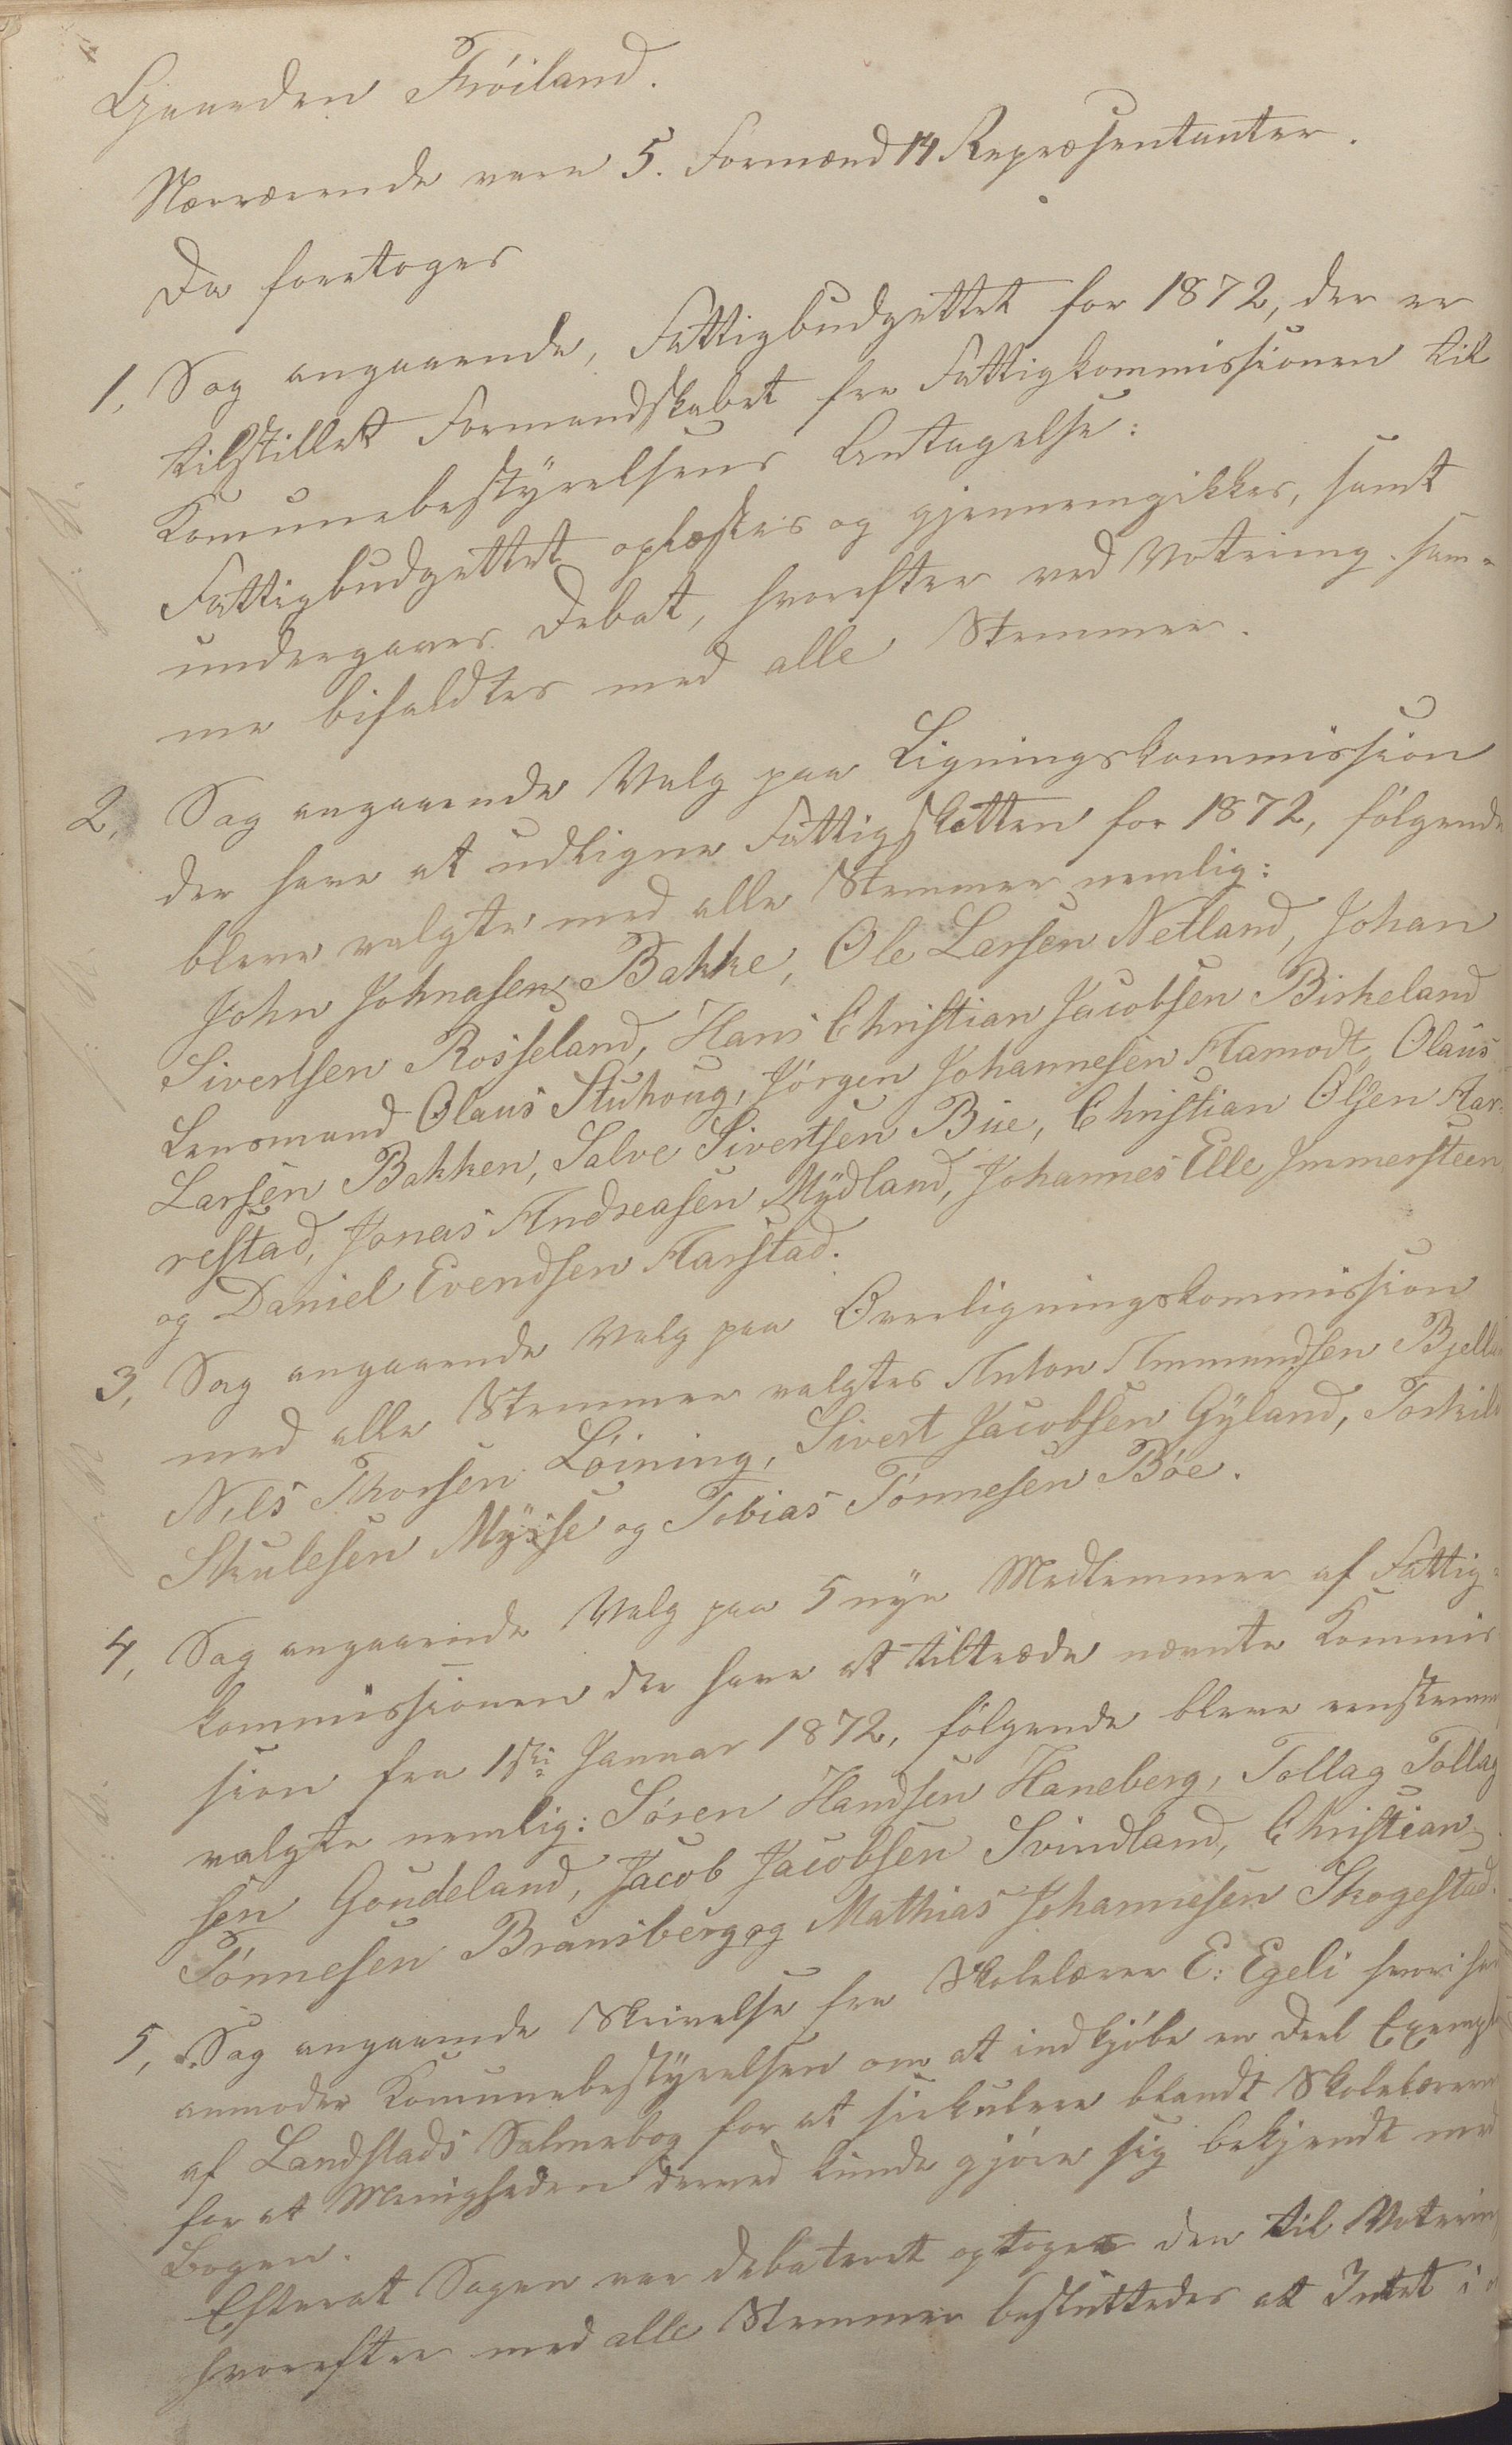 Gaarden Frøiland.
Nærværende vare 5. Formænd 14 Repræsentanter.
Da foretoges
1, Sag angaaende, Fattigbudgettet for 1872, der er
tilstillet Formandskabet fra Fattigkommissionen til
Komunebestyrelsens Antagelse:
Fattigbudgettet oplæstes og gjennemgikkes, samt
undergaves Debat, hvorefter ved Votering sam-
me bifaldtes med alle Stemmer.
2, Sag angaaende Valg paa Ligningskommission
der have at udligne Fattigskatten for 1872, følgende
bleve valgte med alle Stemmer nemlig:
John Johnasen Bakke, Ole Larsen Netland, Johan
Sivertsen Rosseland, Hans Christian Jacobsen Birkeland
Lensmand Olaus Stuhoug, Jørgen Johannesen Aamodt, Olaus
Larsen Bakken, Salve Sivertsen Bue, Christian Olsen Aar-
restad, Jonas Andreasen Mydland, Johannes Elle Immersteen
og Daniel Evendsen Aarstad.
3, Sag angaaende Valg paa Overligningskommission
med alle Stemmer valgtes Anton Ammundsen Bjelland
Nils Thorsen Løining, Sivert Jacobsen Gyland, Torkild
Skulesen Mysse og Tobias Tønnesen Bøe.
4, Sag angaaende Valg paa 5 nye Medlemmer af Fattig-
kommissionen der have at tiltræde nævnte Kommis
sion fra 1ste Januar 1872, følgende bleve eenstemm
valgte nemlig: Søren Handsen Haneberg, Tollag Tollag
sen Goudeland, Jacob Jacobsen Svindland, Christian
Tønnesen Bransberg og Mathias Johannesen Skogestad.
5, Sag angaaende Skrivelse fra Skolelærer E: Egeli hvori han
anmoder Komunebestyrelsen om at indkjøbe en Deel Exempl
af Landstads Salmebog for at sirkulere blandt Skolelærerne
for at Menigheden derved kunde gjøre sig bekjendt med
Bogen.
Efterat Sagen var debateret optoges den til Votering
hvorefter med alle Stemmer besluttedes at Intet i